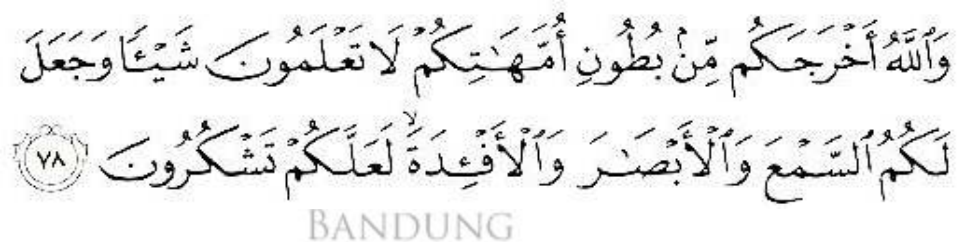 وَٱللَّهُ أَخْرَجَكُم مِّنۢ بُطُونِ أُمَّهَٰتِكُمْ لَا تَعْلَمُونَ شَيْـًٔا وَجَعَلَ
لَكُمُ ٱلسَّمْعَ وَٱلْأَبْصَٰرَ وَٱلْأَفْـِٔدَةَ ۙ لَعَلَّكُمْ تَشْكُرُونَ ٧٨
BANDUNG